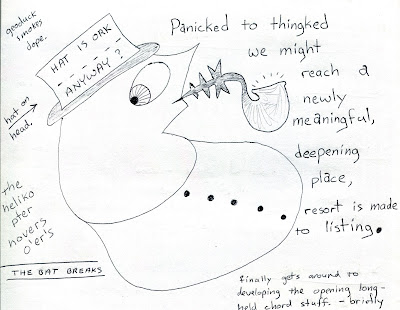 geoduck
smokes
dope.
HAT IS ORK
ANYWAY?
hat on
head.
the
heliko
pter
hovers
o'er's
THE BAT BREAKS
Panicked to thingked
we might
reach a
newly
meaningful,
deepening
place,
resort is made
to listing.
finally gets around to
developing the opening long-
held chord stuff. – briefly